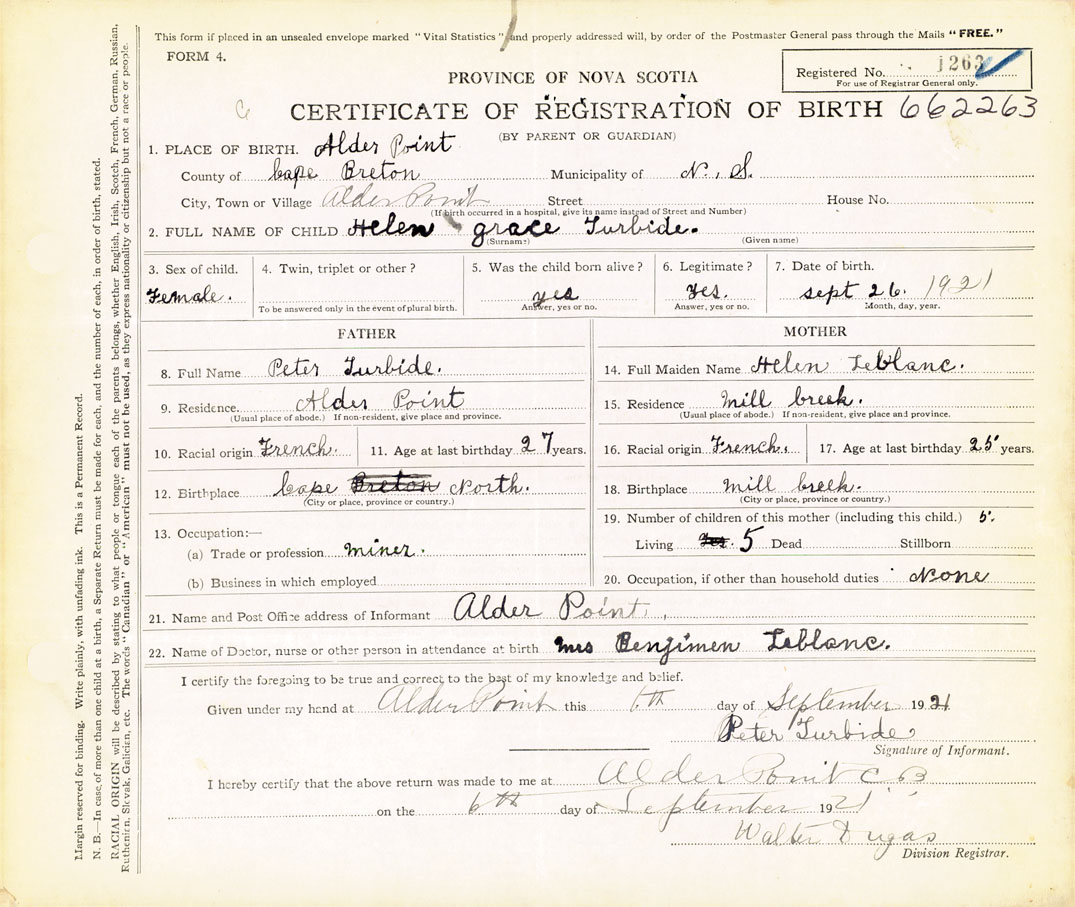 This form if placed in an unsealed envelope marked "Vital Statistics" and properly addressed will, by order of the Postmaster General pass through the Mails "FREE."
FORM 4.
Registered No. 1263
For use of Registrar General only.
PROVINCE OF NOVA SCOTIA
CERTIFICATE OF REGISTRATION OF BIRTH 662263
(BY PARENT OR GUARDIAN)
1. PLACE OF BIRTH. Alder Point
County of Cape Breton Municipality of N. S.
City, Town or Village Alder Point Street House No.
(If birth occurred in a hospital, give its name instead of Street and Number)
2. FULL NAME OF CHILD Helen grace Turbide.
(Surname) (Given name)
3. Sex of child. 4. Twin, triplet or other? 5. Was the child born alive? 6. Legitimate? 7. Date of birth.
Female. yes Yes. sept 26. 1921
To be answered only in the event of plural birth. Answer, yes or no. Answer, yes or no. Month, day, year.
FATHER
8. Full Name Peter Turbide.
9. Residence. Alder Point
(Usual place of abode.) If non-resident, give place and province.
10. Racial origin French. 11. Age at last birthday 27 years.
12. Birthplace Cape Breton North.
(City or place, province or country.)
13. Occupation:—
(a) Trade or profession miner.
(b) Business in which employed
MOTHER
14. Full Maiden Name Helen Leblanc.
15. Residence Mill Creek.
(Usual place of abode.) If non-resident, give place and province.
16. Racial origin French. 17. Age at last birthday 25 years.
18. Birthplace Mill Creek.
(City or place, province or country.)
19. Number of children of this mother (including this child.) 5.
Living 5 Dead Stillborn
20. Occupation, if other than household duties None
21. Name and Post Office address of Informant Alder Point
22. Name of Doctor, nurse or other person in attendance at birth Mrs Benjimen Leblanc.
I certify the foregoing to be true and correct to the best of my knowledge and belief.
Given under my hand at Alder Point this 6th day of September 1921
Peter Turbide
Signature of Informant.
I hereby certify that the above return was made to me at Alder Point C B
on the 6th day of September 1921
Walter Dugas
Division Registrar.
Margin reserved for binding. Write plainly, with unfading ink. This is a Permanent Record.
N. B.—In case of more than one child at a birth, a Separate Return must be made for each, and the number of each, in order of birth, stated.
RACIAL ORIGIN will be described by stating to what people or tongue each of the parents belongs, whether English, Irish, Scotch, French, German, Russian,
Ruthenirn, Slovak, Galician, etc. The words "Canadian" or "American" must not be used, as they express nationality or citizenship but not a race or people.